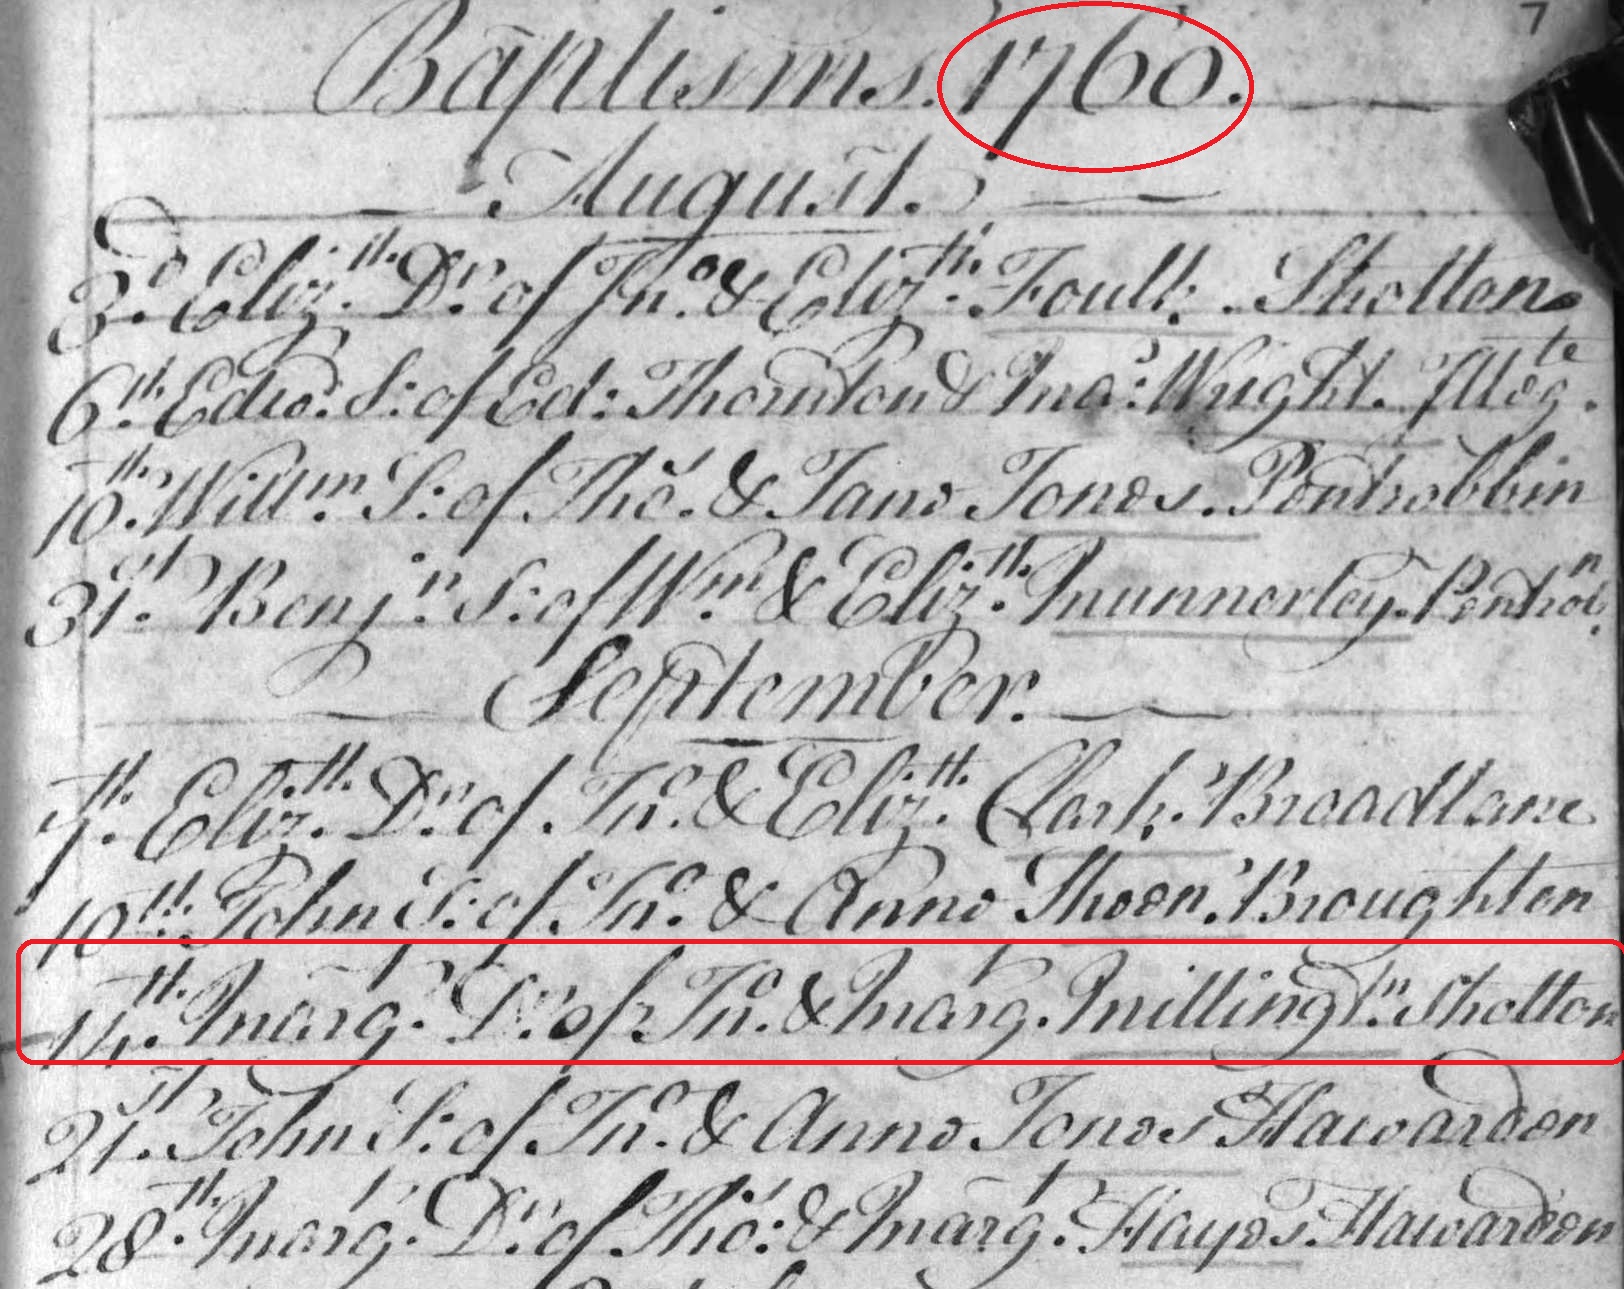 7
Baptisms. 1760.
August.
3d. Elizth. Dr. of Jno. & Elizth. Foulk. Shotton
6th. Edwd. S: of Ed: Thornton & Ma: Wright. Illeg.te
10th. Willm. S: of Thos. & Jane Jones. Pentrobbin
31st. Benjn. S: of Wm. & Elizth. Munnerley. Pentrobn.
September.
7th. Elizth. Dr. of Jno. & Elizth. Clark. Broadlane
10th. John S: of Jno. & Anne Shoen. Broughton
14th. Margt. Dr. of Jno. & Margt. Millingtn. Shotton
21st. John S: of Jno. & Anne Jones Hawarden
28th. Margt. Dr. of Thos: & Margt. Hayes. Hawarden